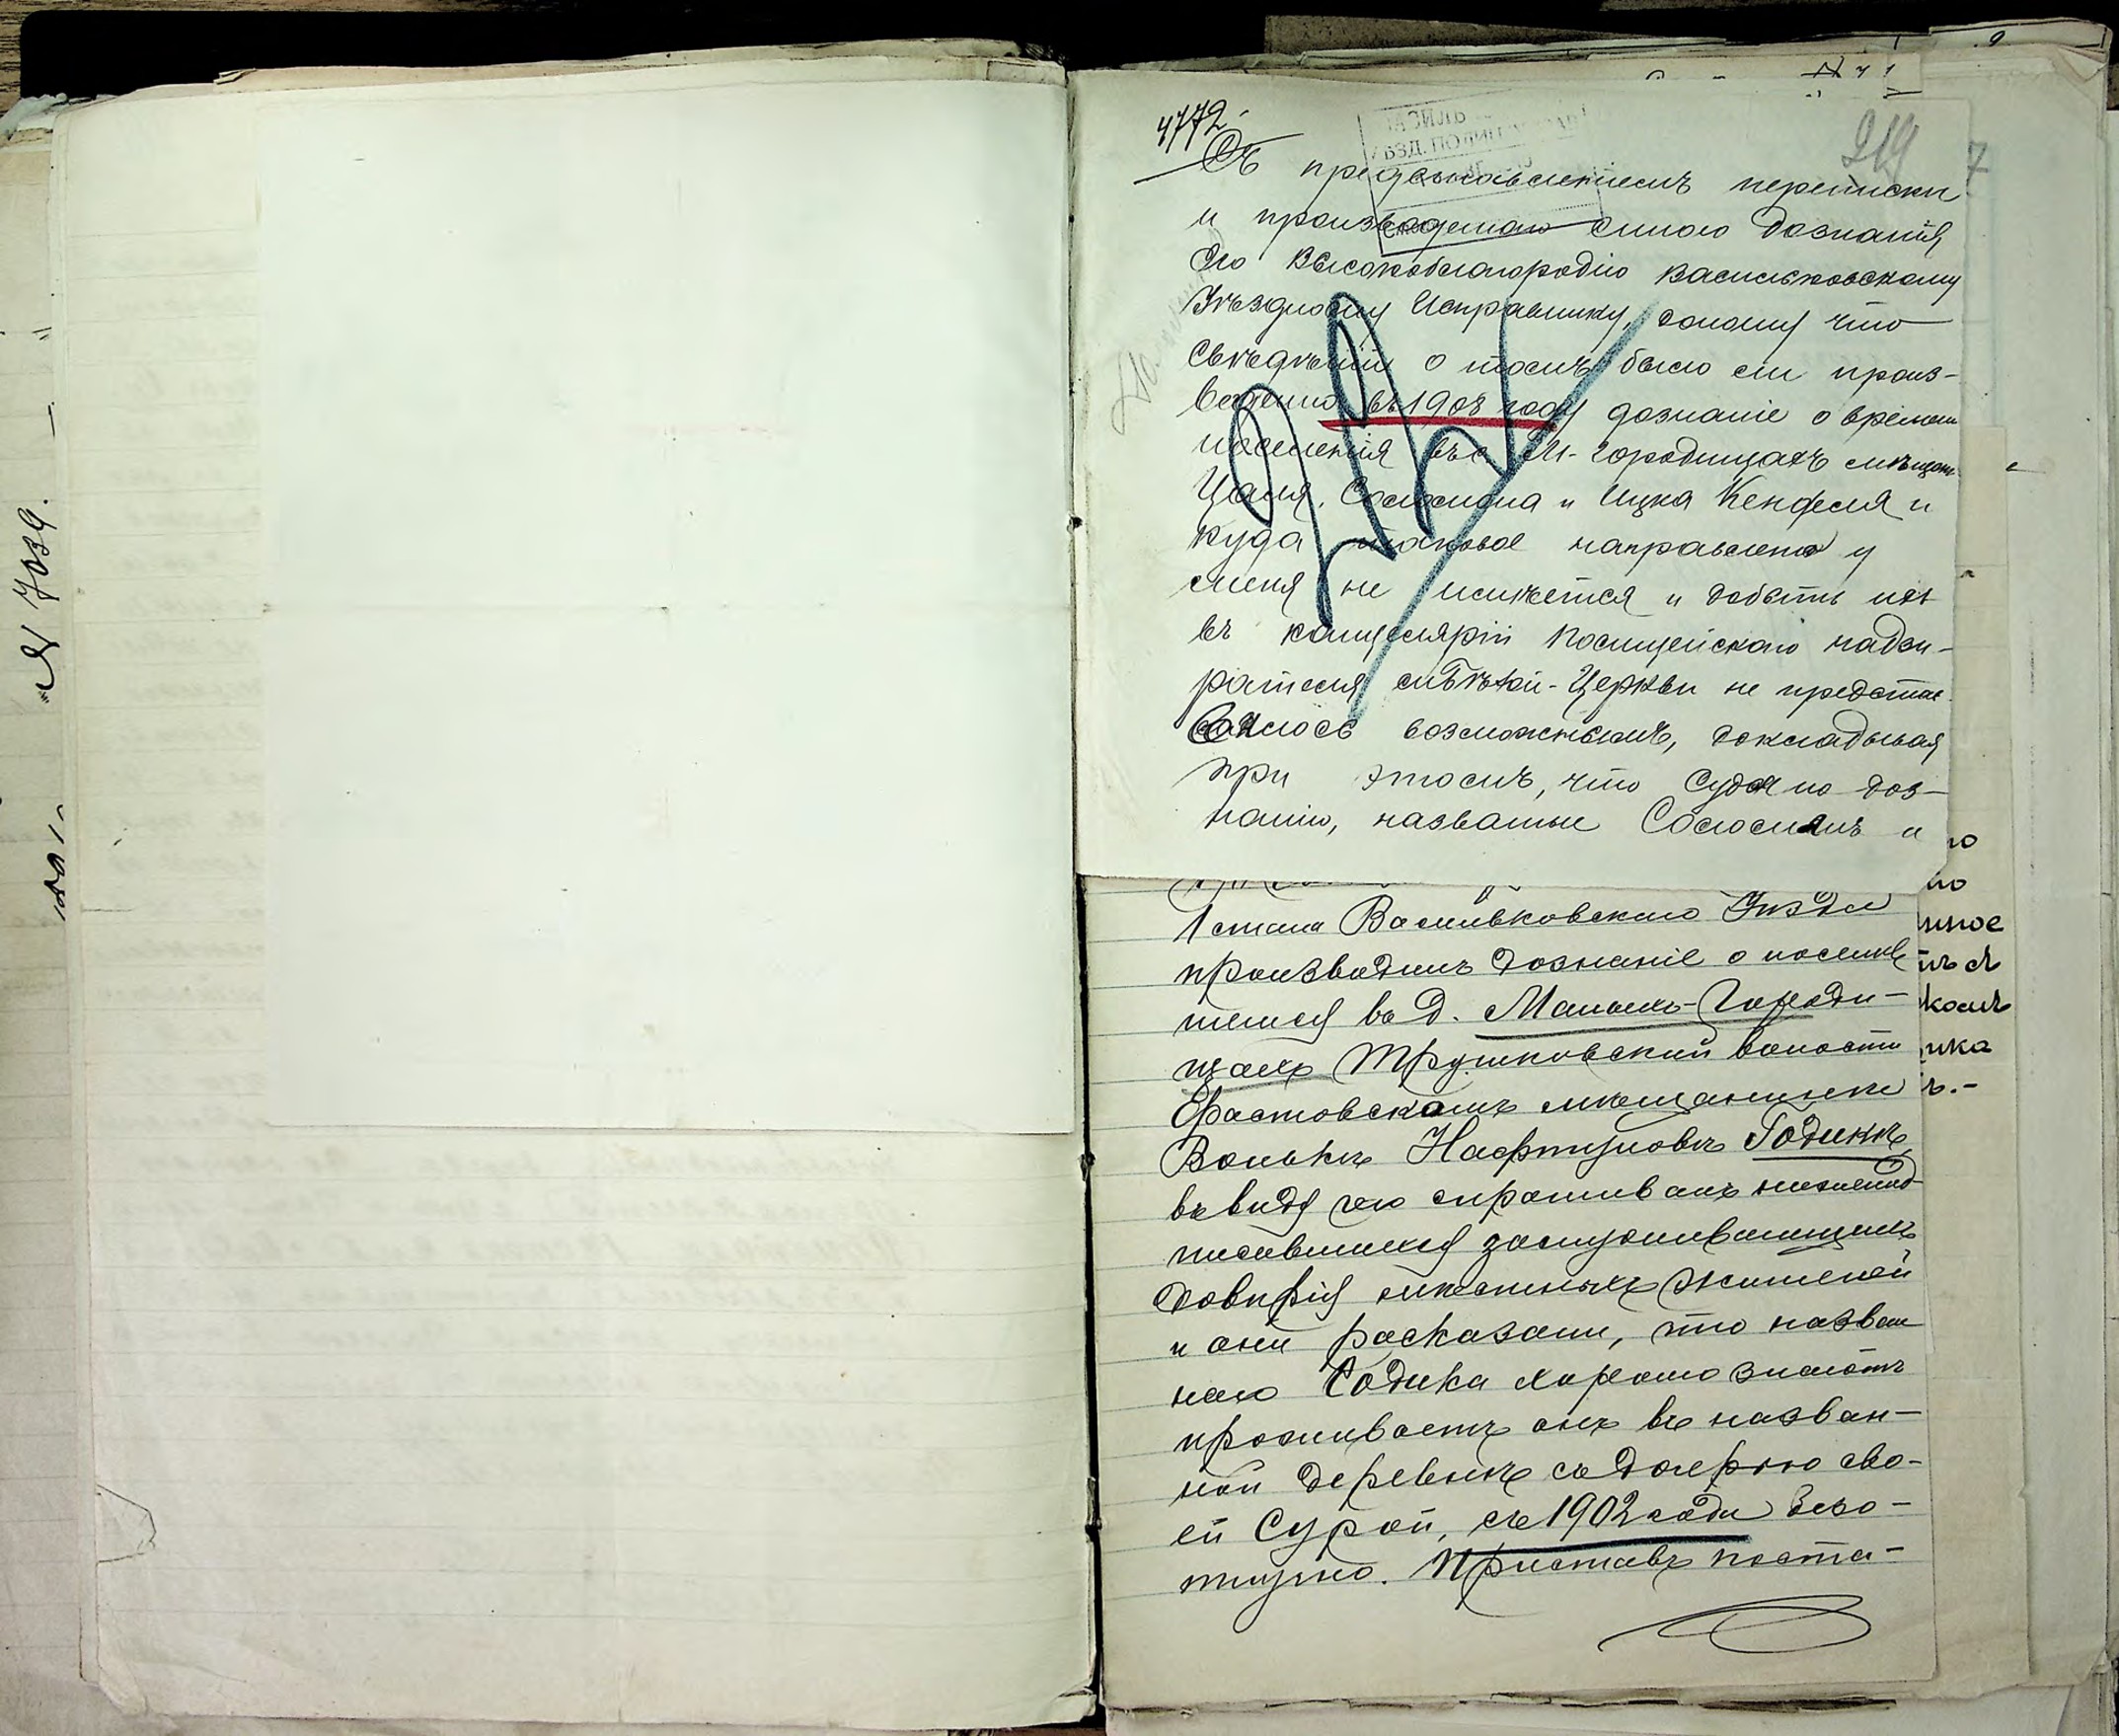 № 7039.
4772.
219
7
Съ представленіемъ переписки
и произведеннаго мною дознанія
Его Высокоблагородію Васильковскому
Уѣздному Исправнику, доношу что
свѣдѣній о томъ было ли произ-
ведено въ 1903 году дознаніе о времени
поселенія въ д. М-Городищахъ мѣщан
Цаля, Соломона и Ицка Кенфеля и
куда таковое направлено у
меня не имѣется и добыть ихъ
въ канцеляріи Полицейскаго надзи-
рателя м Бѣлой-Церкви не предста
влялось возможнымъ, докладывая
при этомъ, что судя по доз-
нанію, названые Соломонъ и
1 стана Васильковскаго Уѣзда
производилъ дознаніе о поселив
шемся въ д. Малыхъ-Городи-
щахъ Трушковской волости
Фастовскомъ мѣщанинѣ
Волькѣ Нафтуловѣ Годикѣ,
въ виду чего спрашивалъ нижепод-
писавшихся заслуживающихъ
довѣрія мѣстныхъ жителей
и они расказали, что назван
наго Годика хорошо знаютъ
проживаетъ онъ въ назван-
ной деревнѣ съ дочерью сво-
ей Сурой, съ 1902 года безо-
тлучно. Приставъ поста-